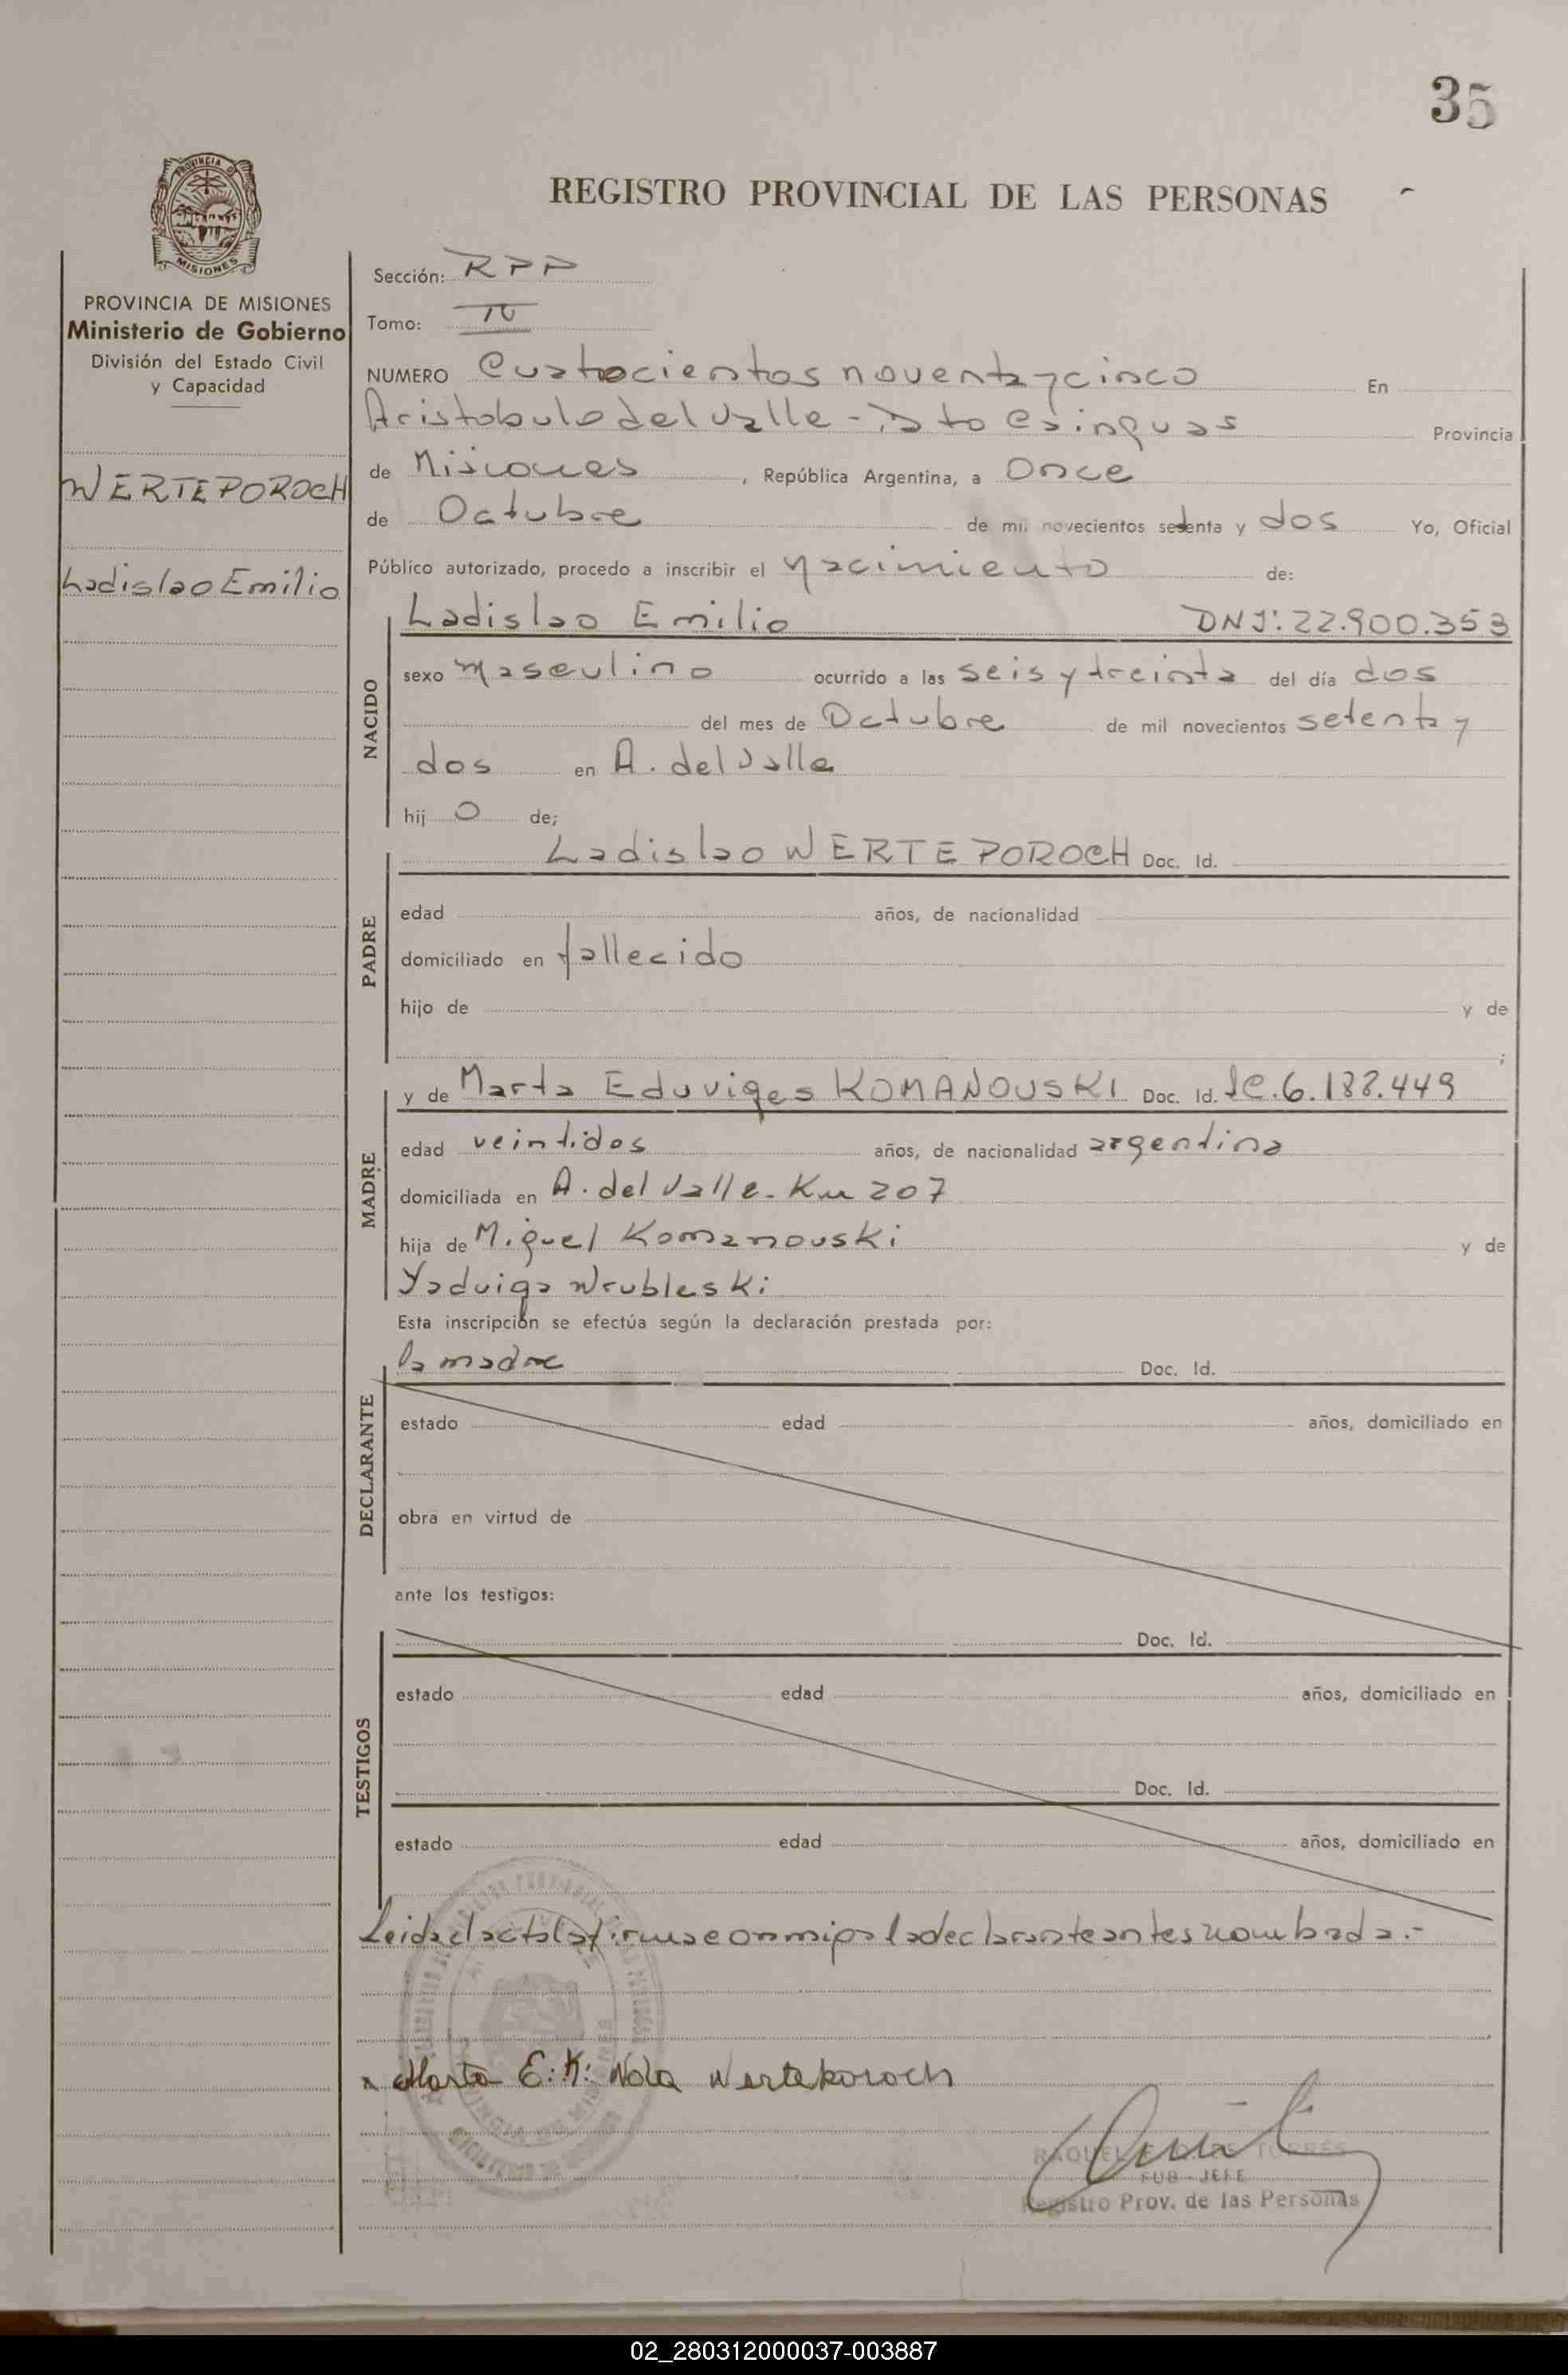 35
REGISTRO PROVINCIAL DE LAS PERSONAS
PROVINCIA DE
MISIONES
PROVINCIA DE MISIONES
Ministerio de Gobierno
División del Estado Civil
y Capacidad
WERTEPOROCH
Ladislao Emilio
Sección: RPP
Tomo: IV
NUMERO Cuatrocientos noventa y cinco En
Aristobulo del Valle - Dto Cainguas Provincia
de Misiones, República Argentina, a Once
de Octubre de mil novecientos setenta y dos Yo, Oficial
Público autorizado, procedo a inscribir el nacimiento de:
NACIDO
Ladislao Emilio DNI: 22.900.353
sexo masculino ocurrido a las seis y treinta del día dos
del mes de Octubre de mil novecientos setenta y
dos en A. del Valle
hij o de;
PADRE
Ladislao WERTEPOROCH Doc. Id.
edad años, de nacionalidad
domiciliado en fallecido
hijo de y de
;
MADRE
y de Marta Eduviges KOMANOUSKI Doc. Id. LC. 6.188.449
edad veintidos años, de nacionalidad argentina
domiciliada en A. del Valle - Km 207
hija de Miguel Komanouski y de
Yaduiga Wrubleski
Esta inscripción se efectúa según la declaración prestada por:
DECLARANTE
la madre Doc. Id.
estado edad años, domiciliado en
obra en virtud de
ante los testigos:
TESTIGOS
Doc. Id.
estado edad años, domiciliado en
Doc. Id.
estado edad años, domiciliado en
Leida el acta la firma conmigo la declarante antes nombada.-
x Marta E. K. Vda Werteporoch
RAQUEL TORRES
SUB-JEFE
Registro Prov. de las Personas
02_280312000037-003887